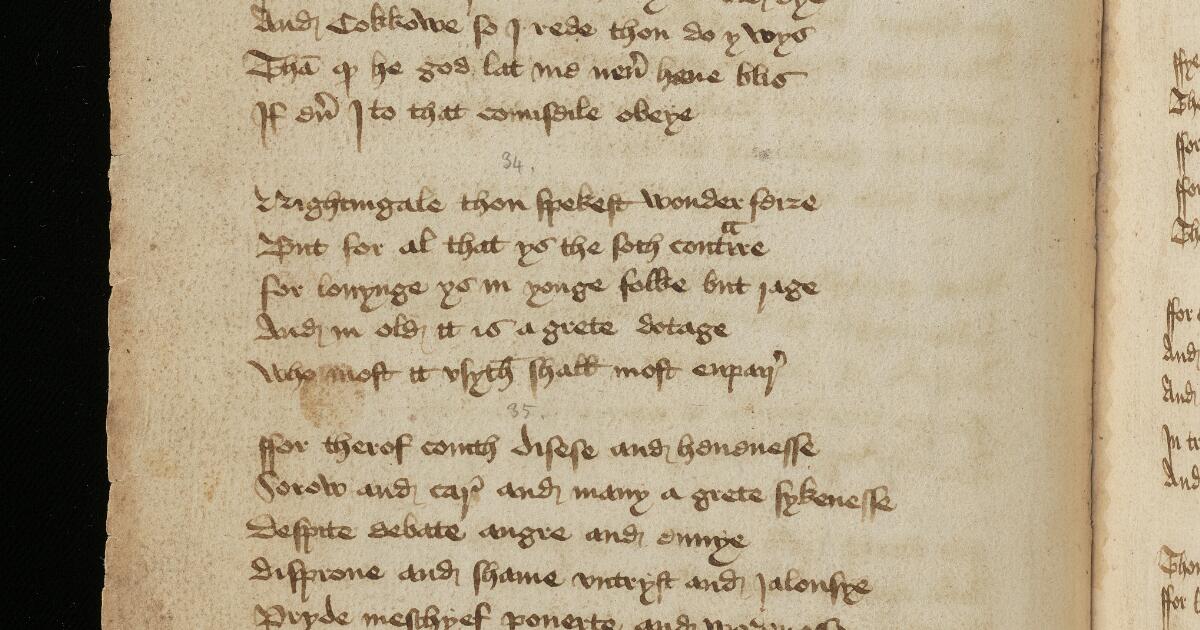 And Cokkowe so I rede thou do ywys
Than qd he god lat me neuer haue blis
If euer I to that counseile obeye
34.
Nightingale thou spekest wonder feire
But for al that ys the soth contraire
for louynge ys in yonge folke but rage
And in olde it is a grete dotage
Who most it vsyth shall most enpaire
35.
ffor therof cometh disese and heuynesse
Sorow and care and many a grete sykenesse
Despite debate angre and enuye
disproue and shame vntryst and Ialousye
Pryde meschyef pouerte and